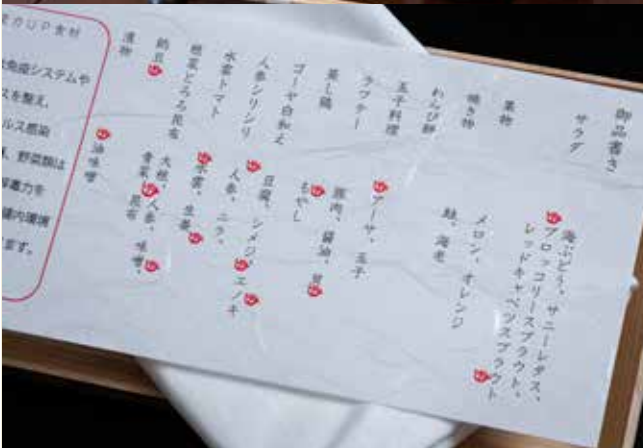 御品書き
サラダ
海ぶどう、サニーレタス、
ブロッコリースプラウト、
レッドキャベツスプラウト
果物
メロン、オレンジ
焼き物
鮭、海老
わらび餅
玉子料理
アーサ、玉子
ラフテー
豚肉、醤油、
蒸し鶏
もやし
ゴーヤ白和え
豆腐、シメジ、エノキ
人参シリシリ
人参、ニラ、
水雲トマト
水雲、生姜
根菜とろろ昆布
大根、人参、味噌、
青菜、昆布
納豆
漬物
油味噌
力UP食材
免疫システムや
スを整え、
ルス感染
野菜類は
解毒力を
腸内環境
ます。